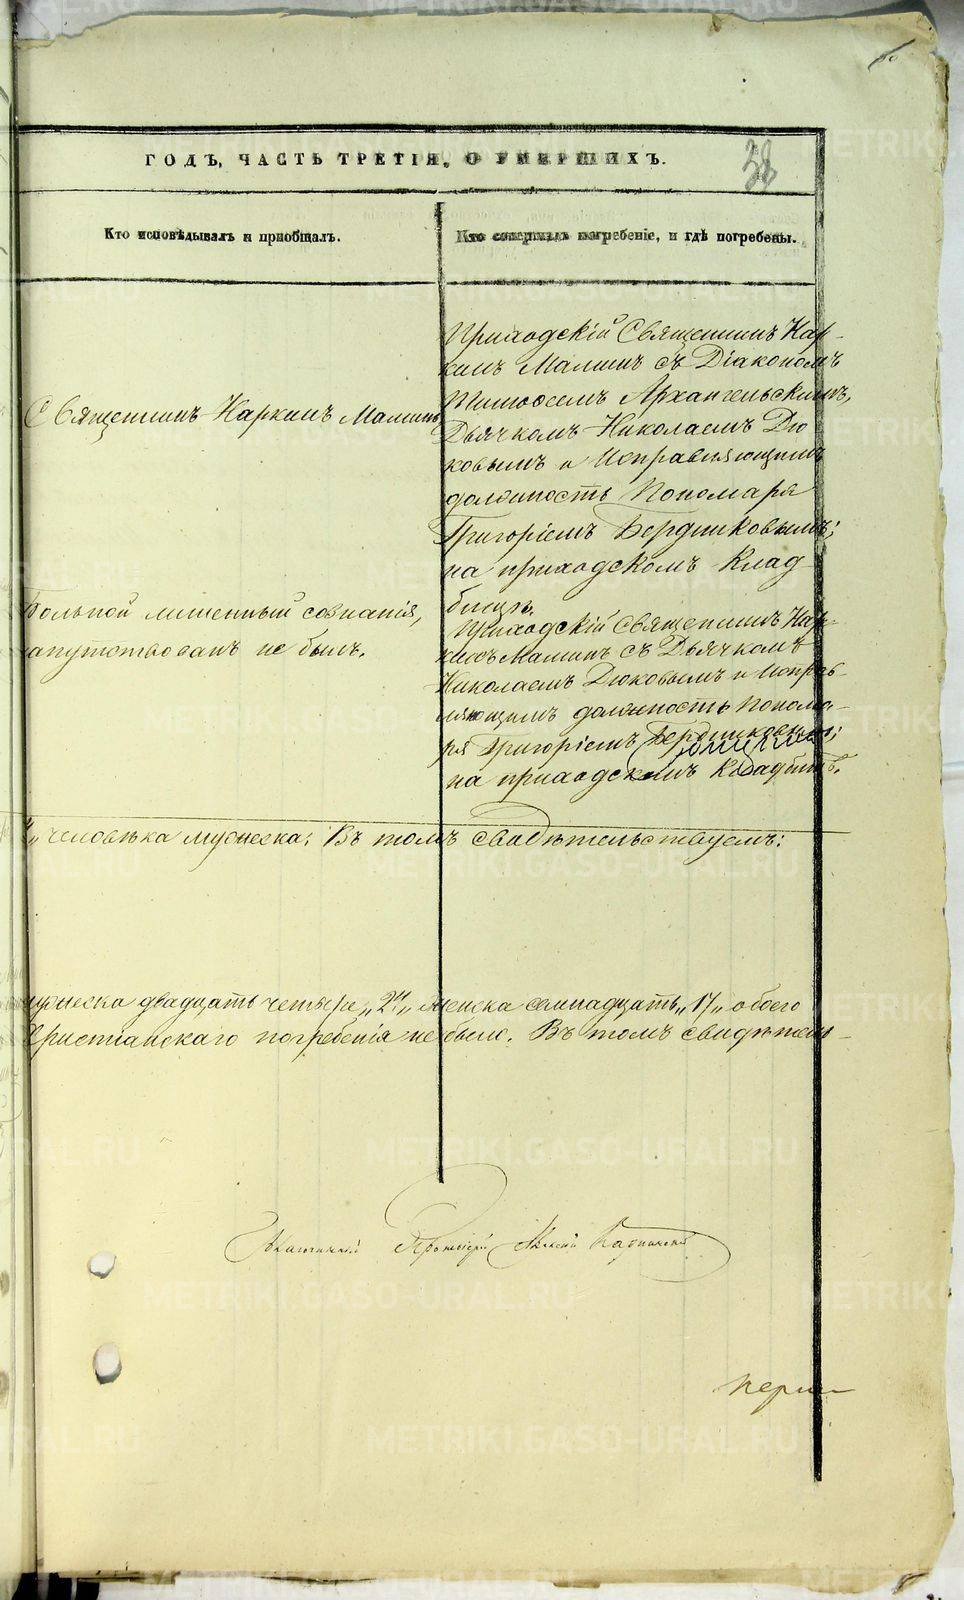 38
ГОДЪ, ЧАСТЬ ТРЕТІЯ, О УМЕРШИХЪ.
Кто исповѣдывалъ и пріобщалъ.
Кто совершалъ погребеніе, и гдѣ погребены.
Священникъ Наркизъ Маминъ
Приходскій Священникъ Нар-
кизъ Маминъ съ Діакономъ
Тимоѳеемъ Архангельскимъ,
Дьячкомъ Николаемъ Дю
ковымъ и Исправляющимъ
должность Пономаря
Григоріемъ Бердниковымъ;
на приходскомъ клад
бищѣ.
Больной лишенный сознанія,
напутствованъ не былъ.
Приходскій Священникъ Нар-
кизъ Маминъ съ Дьячкомъ
Николаемъ Дюковымъ и Исправ-
ляющимъ должность Понома-
ря Григоріемъ Бердниковымъ;
на приходскомъ кладбищѣ.
человѣка мужеска. Въ томъ свидѣтельствуемъ:
мужеска двадцать четыре „24„ женска семнадцать „17„ обоего
христіанскаго погребенія не было. Въ томъ свидѣтель-
Протоіерей
METRIKI.GASO-URAL.RU